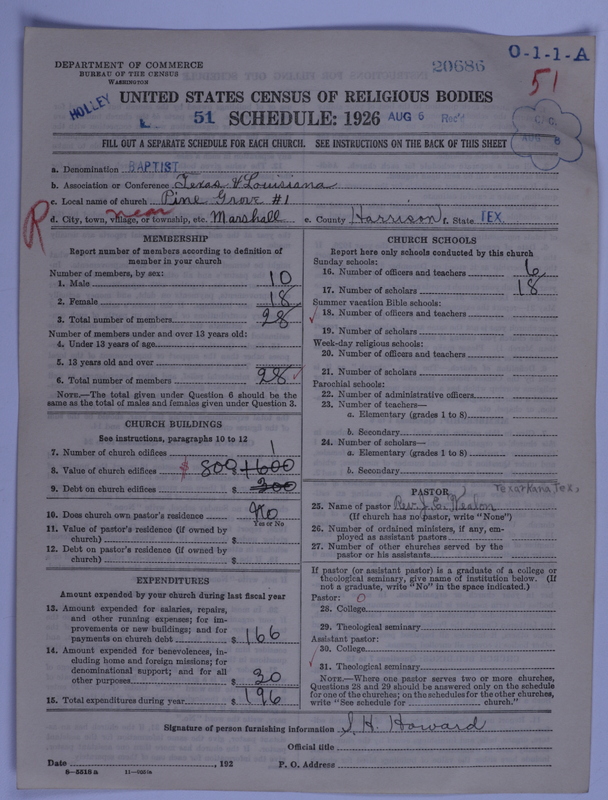 DEPARTMENT OF COMMERCE
BUREAU OF THE CENSUS
WASHINGTON
20686
O-1-1-A
51
HOLLEY
UNITED STATES CENSUS OF RELIGIOUS BODIES
51 SCHEDULE: 1926 AUG 6 Rec'd
FILL OUT A SEPARATE SCHEDULE FOR EACH CHURCH. SEE INSTRUCTIONS ON THE BACK OF THIS SHEET
a. Denomination BAPTIST
b. Association or Conference Texas & Louisiana
c. Local name of church Pine Grove #1
R
near
d. City, town, village, or township, etc. Marshall e. County Harrison f. State TEX
MEMBERSHIP
Report number of members according to definition of
member in your church
Number of members, by sex:
1. Male 10
2. Female 18
3. Total number of members 28
Number of members under and over 13 years old:
4. Under 13 years of age
5. 13 years old and over
6. Total number of members 28
NOTE.—The total given under Question 6 should be the
same as the total of males and females given under Question 3.
CHURCH BUILDINGS
See instructions, paragraphs 10 to 12
7. Number of church edifices 1
8. Value of church edifices $ 800 + 600
9. Debt on church edifices $ 200
10. Does church own pastor's residence No
Yes or No
11. Value of pastor's residence (if owned by
church) $
12. Debt on pastor's residence (if owned by
church) $
EXPENDITURES
Amount expended by your church during last fiscal year
13. Amount expended for salaries, repairs,
and other running expenses; for im-
provements or new buildings; and for
payments on church debt $ 166
14. Amount expended for benevolences, in-
cluding home and foreign missions; for
denominational support; and for all
other purposes $ 30
15. Total expenditures during year $ 196
CHURCH SCHOOLS
Report here only schools conducted by this church
Sunday schools:
16. Number of officers and teachers 6
17. Number of scholars 18
Summer vacation Bible schools:
18. Number of officers and teachers
19. Number of scholars
Week-day religious schools:
20. Number of officers and teachers
21. Number of scholars
Parochial schools:
22. Number of administrative officers
23. Number of teachers—
a. Elementary (grades 1 to 8)
b. Secondary
24. Number of scholars—
a. Elementary (grades 1 to 8)
b. Secondary
PASTOR
Texarkana Tex,
25. Name of pastor Rev. J. C.
(If church has no pastor, write "None")
26. Number of ordained ministers, if any, em-
ployed as assistant pastors
27. Number of other churches served by the
pastor or his assistants
If pastor (or assistant pastor) is a graduate of a college or
theological seminary, give name of institution below. (If
not a graduate, write "No" in the space indicated.)
Pastor: 0
28. College
29. Theological seminary
Assistant pastor:
30. College
31. Theological seminary
NOTE.—Where one pastor serves two or more churches,
Questions 28 and 29 should be answered only on the schedule
for one of the churches; on the schedules for the other churches,
write "See schedule for church."
Signature of person furnishing information J. H. Howard
Official title
Date , 192 P. O. Address
6-5518a 11-0051a